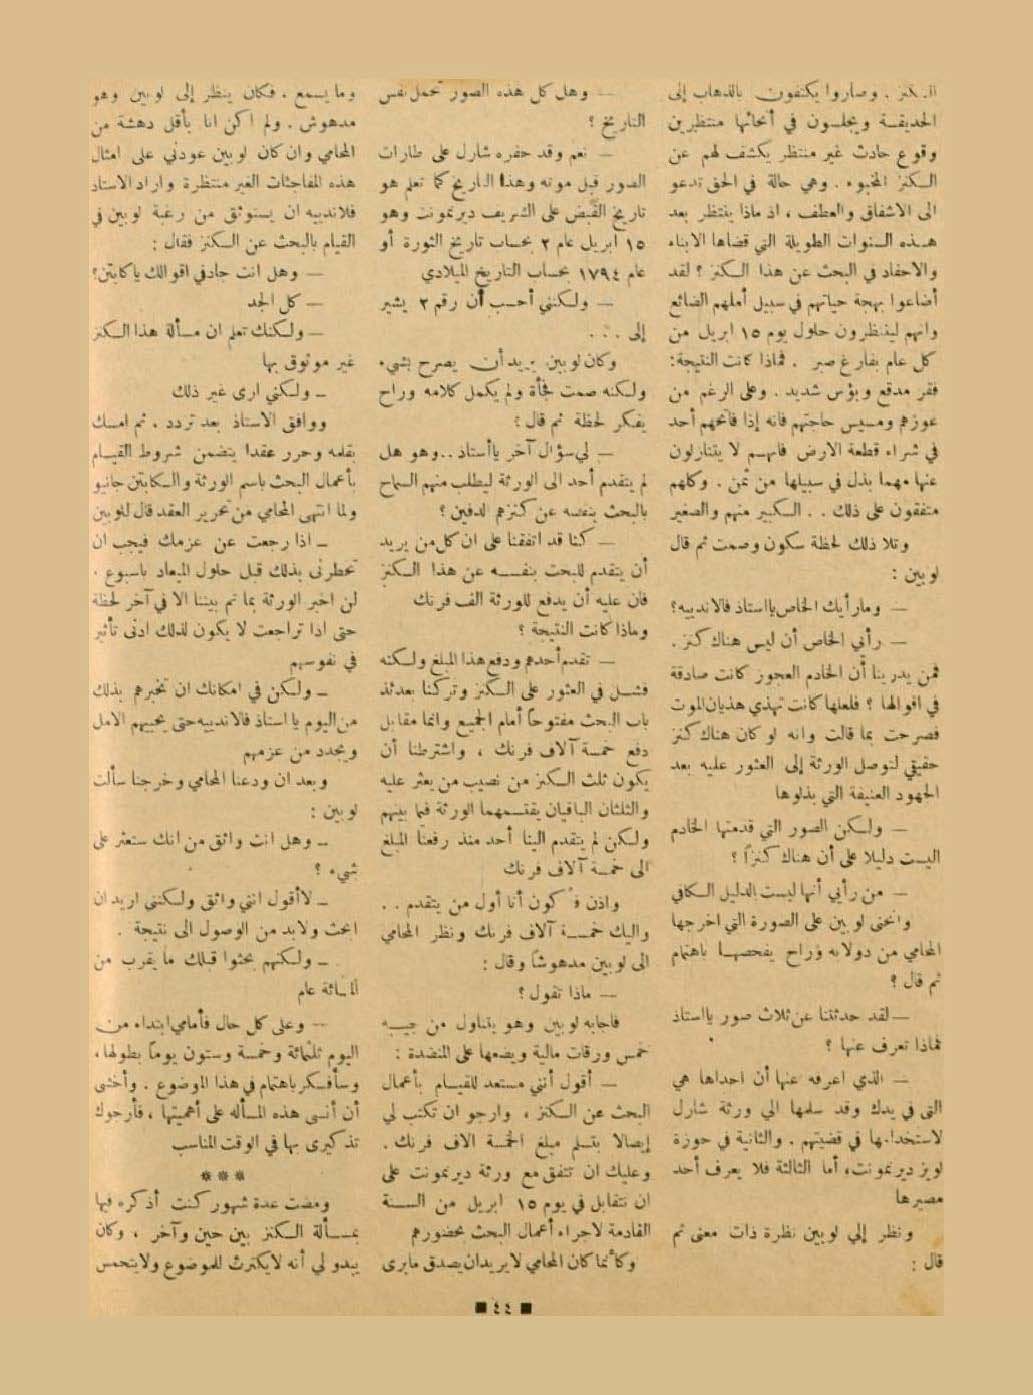 الكنز . وصاروا يكتفون بالذهاب إلى
الحديقة ويجلسون في أنحائها منتظرين
وقوع حادث غير منتظر يكشف لهم عن
الكنز المخبوء . وهي حالة في الحق تدعو
الى الاشفاق والعطف ، اذ ماذا ينتظر بعد
هذه السنوات الطويلة التي قضاها الابناء
والاحفاد في البحث عن هذا الكنز ؟ لقد
أضاعوا بهجة حياتهم في سبيل أملهم الضائع
وانهم لينتظرون حلول يوم ١٥ ابريل من
كل عام بفارغ صبر . فماذا كانت النتيجة:
فقر مدقع وبؤس شديد . وعلى الرغم من
عوزهم ومسيس حاجتهم فانه إذا فاتحهم أحد
في شراء قطعة الارض فانهم لا يتنازلون
عنها مهما بذل في سبيلها من ثمن . وكلهم
متفقون على ذلك . . الكبير منهم والصغير
وتلا ذلك لحظة سكون وصمت ثم قال
لوبين :
— وما رأيك الخاص يا استاذ فالاندييه؟
— رأيي الخاص أن ليس هناك كنز .
فمن يدرينا أن الخادم العجوز كانت صادقة
في اقوالها ؟ فلعلها كانت تهذي هذيان الموت
فصرحت بما قالت وانه لو كان هناك كنز
حقيقي لتوصل الورثة إلى العثور عليه بعد
الجهود العنيفة التي بذلوها
— ولكن الصور التي قدمتها الخادم
اليست دليلا على أن هناك كنزاً ؟
— من رأيي أنها ليست الدليل الكافي
وانحنى لوبين على الصورة التي اخرجها
المحامي من دولابه وراح يفحصها باهتمام
ثم قال ؟
— لقد حدثتنا عن ثلاث صور يا استاذ
فماذا تعرف عنها ؟
— الذي اعرفه عنها أن احداها هي
التى في يدك وقد سلمها الي ورثة شارل
لاستخدامها في قضيتهم . والثانية في حوزة
لويز ديرنمونت، أما الثالثة فلا يعرف أحد
مصيرها
ونظر إلي لوبين نظرة ذات معنى ثم
قال :
— وهل كل هذه الصور تحمل نفس
التاريخ ؟
— نعم وقد حفره شارل على طارات
الصور قبل موته وهذا التاريخ كما تعلم هو
تاريخ القبض على الشريف ديرنمونت وهو
١٥ ابريل عام ٢ بحساب تاريخ الثورة أو
عام ١٧٩٤ بحساب التاريخ الميلادي
— ولكنني أحسب أن رقم ٢ يشير
إلى . . .
وكان لوبين يريد أن يصرح بشيء
ولكنه صمت فجأة ولم يكمل كلامه وراح
يفكر لحظة ثم قال ؟
— لي سؤال آخر يا أستاذ .. وهو هل
لم يتقدم أحد الى الورثة ليطلب منهم السماح
بالبحث بنفسه عن كنزهم الدفين ؟
— كنا قد اتفقنا على ان كل من يريد
أن يتقدم للبحث بنفسه عن هذا الكنز
فان عليه أن يدفع للورثة الف فرنك
وماذا كانت النتيجة ؟
— تقدم أحدهم ودفع هذا المبلغ ولكنه
فشل في العثور على الكنز وتركنا بعدئذ
باب البحث مفتوحاً أمام الجميع وانما مقابل
دفع خمسة آلاف فرنك ، واشترطنا أن
يكون ثلث الكنز من نصيب من يعثر عليه
والثلثان الباقيان يقتسمهما الورثة فيما بينهم
ولكن لم يتقدم الينا أحد منذ رفعنا المبلغ
الى خمسة آلاف فرنك
واذن فأكون أنا أول من يتقدم . .
واليك خمسة آلاف فرنك ونظر المحامي
الى لوبين مدهوشاً وقال :
— ماذا تقول ؟
فاجابه لوبين وهو يتناول من جيبه
خمس ورقات مالية ويضعها على المنضدة :
— أقول أنني مستعد للقيام بأعمال
البحث عن الكنز ، وارجو ان تكتب لي
إيصالا بتسلم مبلغ الخمسة الاف فرنك .
وعليك ان تتفق مع ورثة ديرنمونت على
ان نتقابل في يوم ١٥ ابريل من السنة
القادمة لاجراء أعمال البحث بحضورهم
وكأنما كان المحامي لا يريد ان يصدق ما يرى
وما يسمع . فكان ينظر إلى لوبين وهو
مدهوش . ولم اكن انا بأقل دهشة من
المحامي وان كان لوبين عودني على امثال
هذه المفاجئات الغير منتظرة واراد الاستاذ
فلاندييه ان يستوثق من رغبة لوبين في
القيام بالبحث عن الكنز فقال :
— وهل انت جاد في اقوالك يا كابتن؟
— كل الجد
— ولكنك تعلم ان مسألة هذا الكنز
غير موثوق بها
— ولكني ارى غير ذلك
ووافق الاستاذ بعد تردد . ثم امسك
بقلمه وحرر عقدا يتضمن شروط القيام
بأعمال البحث باسم الورثة والكابتن جانيو
ولما انتهى المحامي من تحرير العقد قال للوبين
— اذا رجعت عن عزمك فيجب ان
تخطرني بذلك قبل حلول الميعاد باسبوع .
لن اخبر الورثة بما تم بيننا الا في آخر لحظة
حتى اذا تراجعت لا يكون لذلك ادنى تأثير
في نفوسهم
— ولكن في امكانك ان تخبرهم بذلك
من اليوم يا استاذ فالاندييه حتى يحييهم الامل
ويجدد من عزمهم
وبعد ان ودعنا المحامي وخرجنا سألت
لوبين :
— وهل انت واثق من انك ستعثر على
شيء ؟
— لا أقول انني واثق ولكنني اريد ان
ابحث ولابد من الوصول الى نتيجة .
— ولكنهم بحثوا قبلك ما يقرب من
المائة عام
— وعلى كل حال فأمامي ابتداء من
اليوم ثلثمائة وخمسة وستون يوماً بطولها،
وسأفكر باهتمام في هذا الموضوع . وأخشى
أن أنسى هذه المسألة على أهميتها ، فأرجوك
تذكيرى بها في الوقت المناسب
***
ومضت عدة شهور كنت أذكره فيها
بمسألة الكنز بين حين وآخر ، وكان
يبدو لي أنه لا يكترث للموضوع ولا يتحمس
■ ٤٤ ■